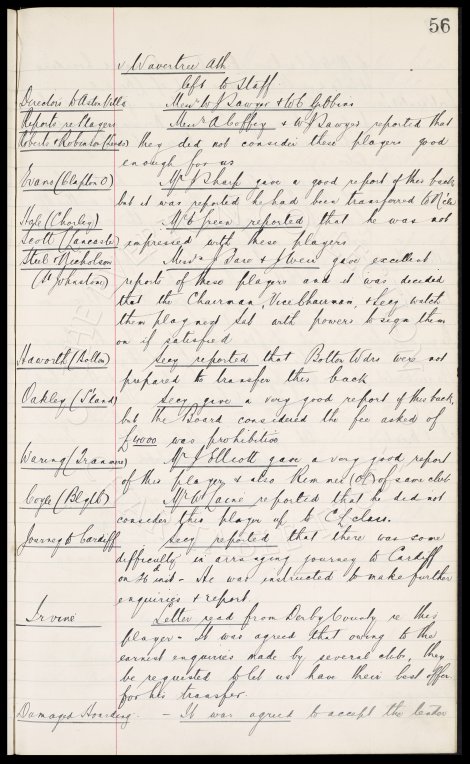 56
v Wavertree Ath
left to Staff
Directors to Aston Villa Messrs W J Sawyer & W C Gibbins
Reports re Players Messrs A Coffey & W J Sawyer reported that
Roberts & Robinson (Leeds) they did not consider these players good
enough for us
Evans (Clapton O) Mr J Sharp gave a good report of this back
but it was reported he had been transferred to
Hale (Chorley) Mr E Green reported that he was not
Scott (Lancaster) impressed with these players
Steel & Nicholson Messrs gave excellent
(St Johnstone) reports of these players and it was decided
that the Chairman, Vice Chairman, & Secy watch
them play next Sat with powers to sign them
on if satisfied
Haworth (Bolton) Secy reported that Bolton Wdrs were not
prepared to transfer this back
Oakley (S'land) Secy gave a very good report of this back,
but the Board considered the fee asked of
£4000 was prohibitive
Waring (Tranmere) Mr J Elliott gave a very good report
of this player & also Rimmer (OL) of same club
Coyle (Blyth) Mr W Raine reported that he did not
consider this player up to CL class.
Journey to Cardiff Secy reported that there was some
difficulty in arranging journey to Cardiff
on 26 inst - He was instructed to make further
enquiries & report.
Irvine Letter read from Derby County re this
player - It was agreed that owing to the
earnest enquiries made by several clubs, they
be requested to let us have their best offer
for his transfer.
Damaged Hoarding: - It was agreed to accept the tender